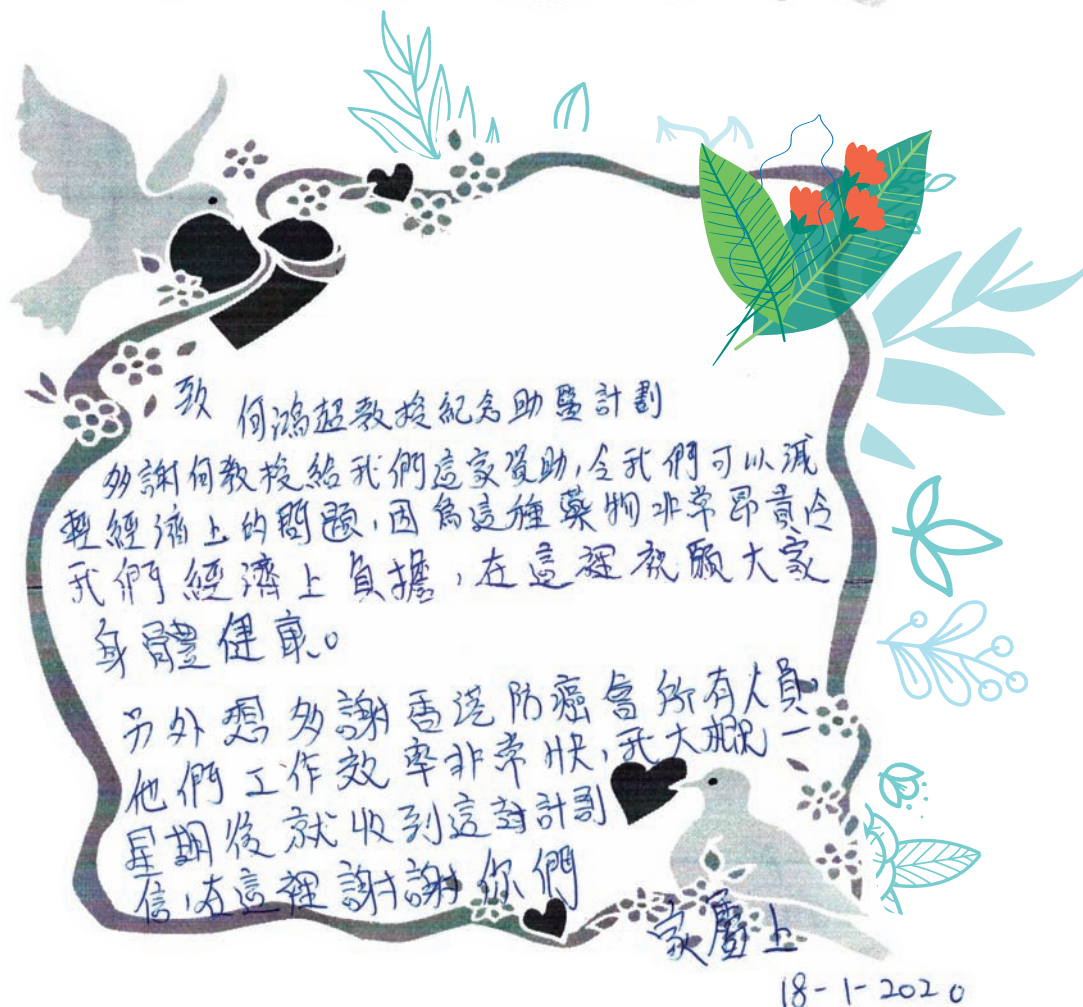 致 何鴻超教授紀念助醫計劃
多謝何教授給我們這家資助,令我們可以減
輕經濟上的問題,因為這種藥物非常昂貴令
我們經濟上負擔,在這裡祝願大家
身體健康。
另外想多謝香港防癌會所有人員,
他們工作效率非常快,我大概一
星期後就收到這封計劃
信,在這裡謝謝你們
家屬上
18-1-2020